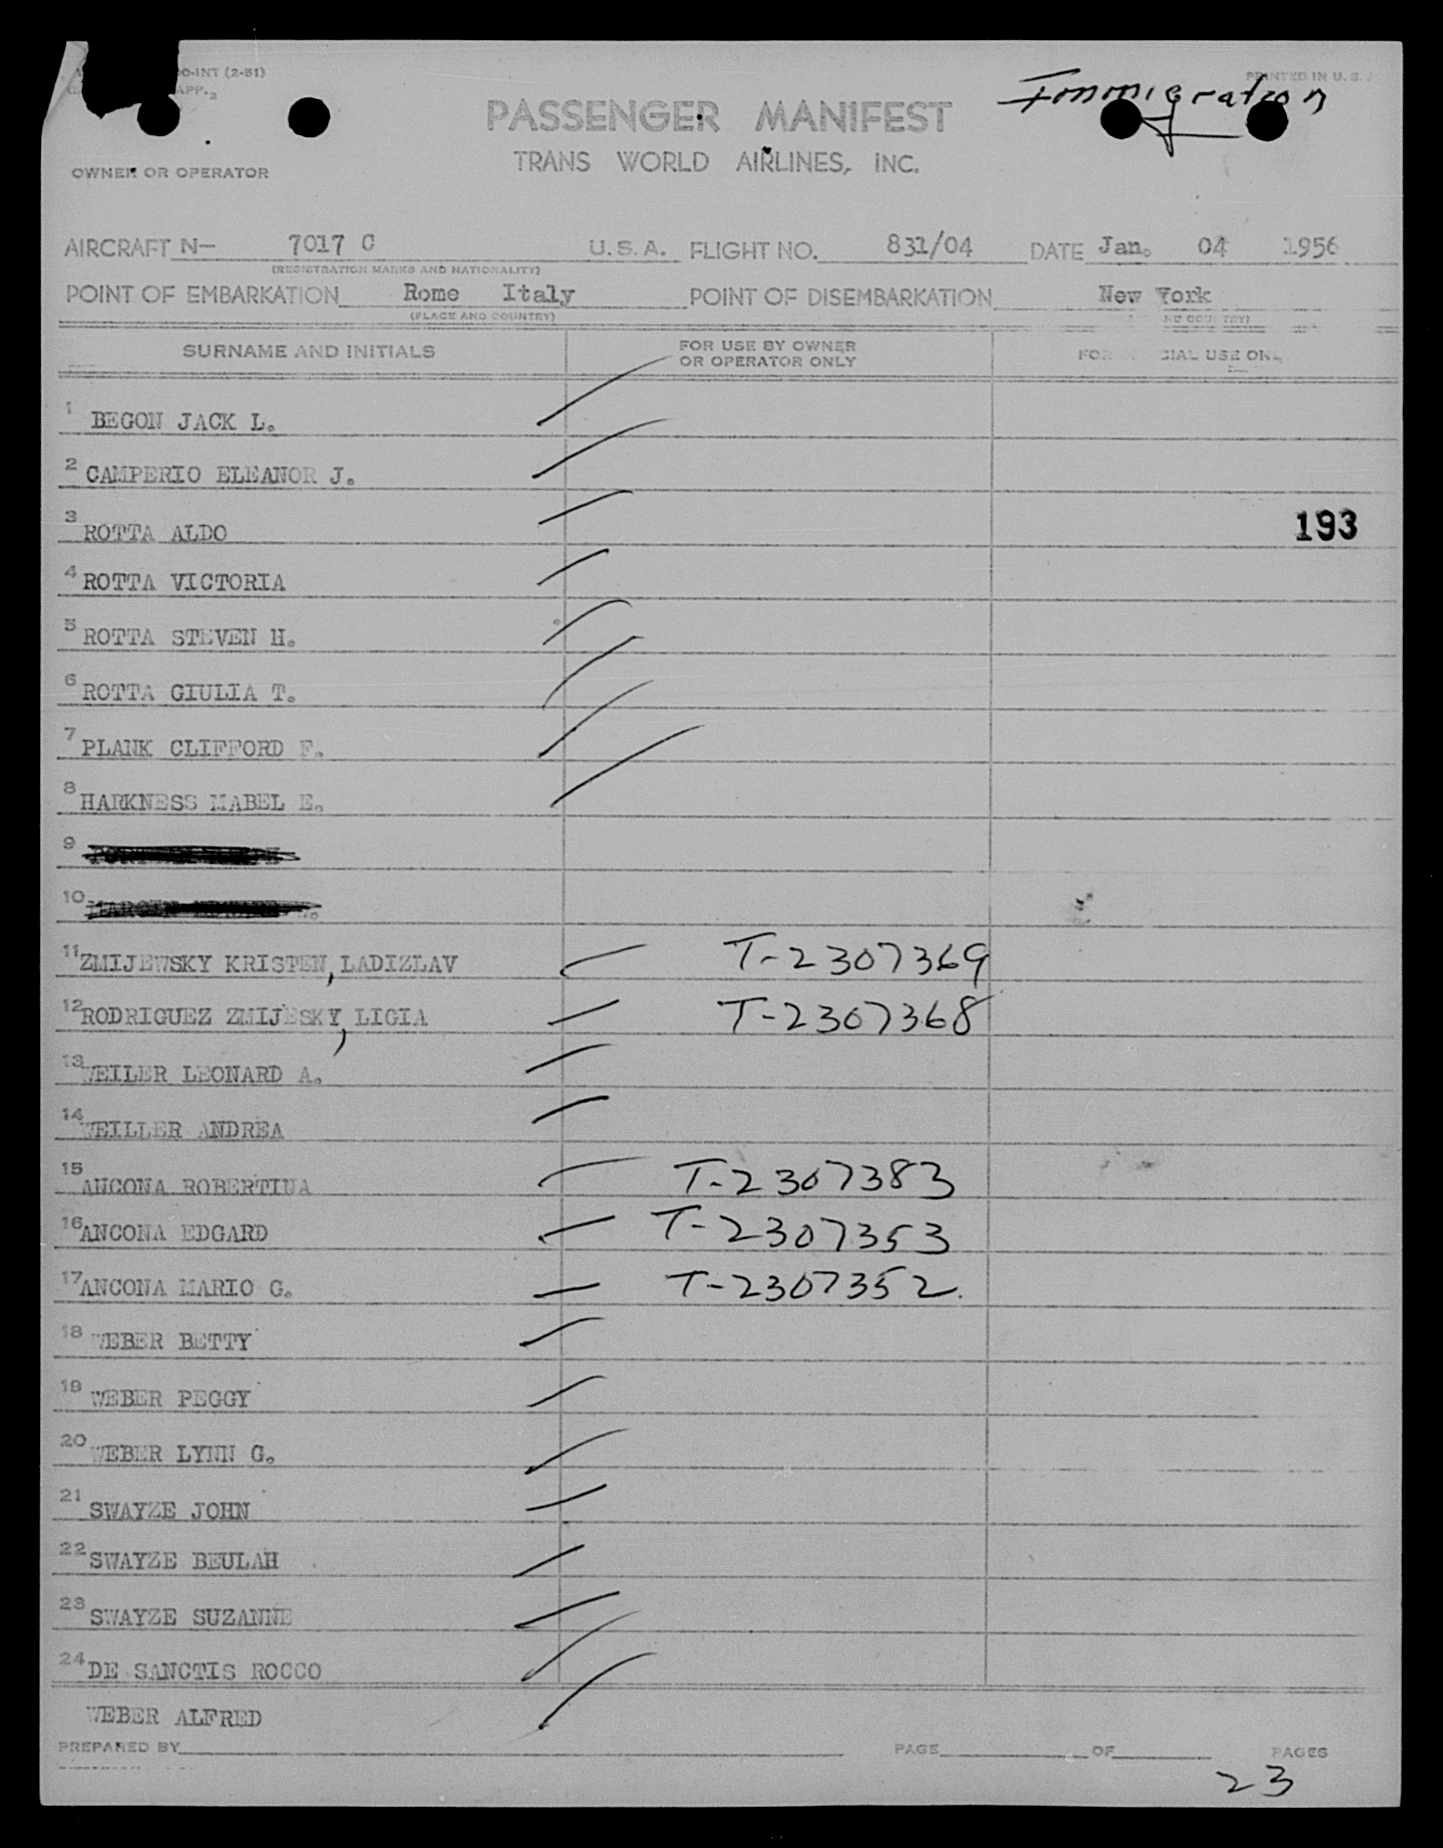 O-INT (2-51)
APP.
PRINTED IN U. S.
Immigration
PASSENGER MANIFEST
TRANS WORLD AIRLINES, INC.
OWNER OR OPERATOR
AIRCRAFT N— 7017 C U.S.A. FLIGHT NO. 831/04 DATE Jan. 04 1956
(REGISTRATION MARKS AND NATIONALITY)
POINT OF EMBARKATION Rome Italy POINT OF DISEMBARKATION New York
(PLACE AND COUNTRY)
SURNAME AND INITIALS FOR USE BY OWNER OR OPERATOR ONLY FOR CIAL USE ONL
1 BEGON JACK L.
2 CAMPERIO ELEANOR J.
3 ROTTA ALDO 193
4 ROTTA VICTORIA
5 ROTTA STEVEN H.
6 ROTTA GIULIA T.
7 PLANK CLIFFORD F.
8 HARKNESS MABEL E.
9
10
11 ZMIJEWSKY KRISTEN, LADIZLAV T-2307369
12 RODRIGUEZ ZMIJESKY, LIGIA T-2307368
13 WEILER LEONARD A.
14 WEILLER ANDREA
15 ANCONA ROBERTINA T-2307383
16 ANCONA EDGARD T-2307353
17 ANCONA MARIO G. T-2307352.
18 WEBER BETTY
19 WEBER PEGGY
20 WEBER LYNN G.
21 SWAYZE JOHN
22 SWAYZE BEULAH
23 SWAYZE SUZANNE
24 DE SANCTIS ROCCO
WEBER ALFRED
PREPARED BY PAGE OF PAGES
23